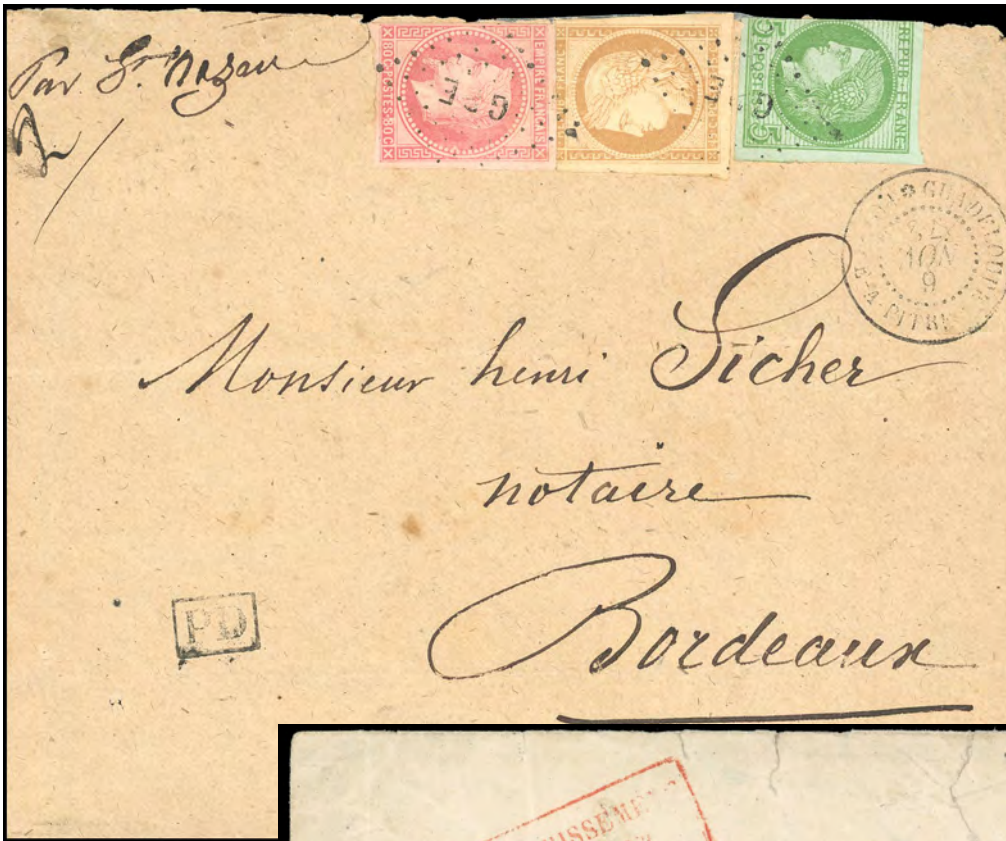 Par St. Nazaire
2
80C POSTES 80C
EMPIRE FRANÇAIS
GPE
REPUB FRANC
5 POSTES 5
G
GUADELOUPE
NOV
9
P-A-PITRE
Monsieur henri Sicher
notaire
Bordeaux
PD